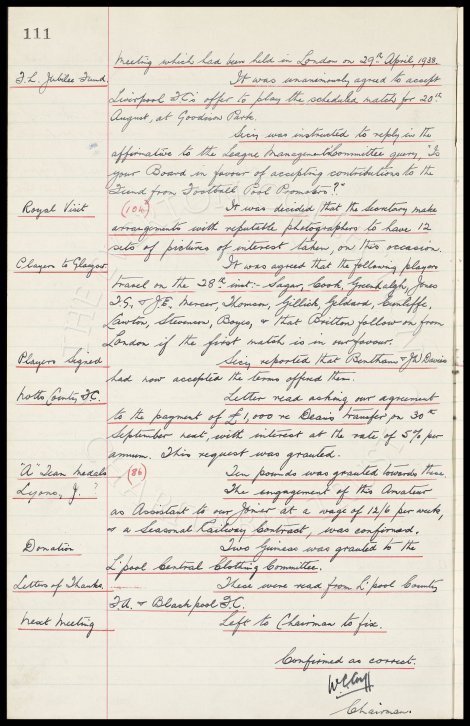 111
meeting which had been held in London on 29th April 1938.
F.L. Jubilee Fund. It was unanimously agreed to accept
Liverpool FC's offer to play the scheduled match for 20th
August, at Goodison Park.
Secy was instructed to reply in the
affirmative to the League Management Committee query, "Is
your Board in favour of accepting contributions to the
Fund from Football Pool Promoters?"
Royal Visit (104) It was decided that the Secretary make
arrangements with reputable photographers to have 12
sets of pictures of interest taken, on this occasion.
Players to Glasgow It was agreed that the following players
travel on the 28th inst:- Sagar, Cook, Greenhalgh, Jones
T.G. & J.E. Mercer, Thomson, Gillick, Geldard, Cunliffe,
Lawton, Stevenson, Boyes, & that Britton follow on from
London if the first match is in our favour.
Players Signed Secy reported that Bentham & JW Davies
had now accepted the terms offered them.
Notts County F.C. Letter read asking our agreement
to the payment of £1,000 re Dean's transfer on 30th
September next, with interest at the rate of 5% per
annum. This request was granted.
"A" Team Medals (86) Ten pounds was granted towards these.
Lyons, J. ? The engagement of this Amateur
as Assistant to our Joiner at a wage of 12/6 per week,
& a Seasonal Railway Contract, was confirmed.
Donation Two Guineas was granted to the
L'pool Central Clothing Committee.
Letters of Thanks These were read from L'pool County
F.A. & Blackpool F.C.
Next Meeting Left to Chairman to fix.
Confirmed as correct.
Chairman.